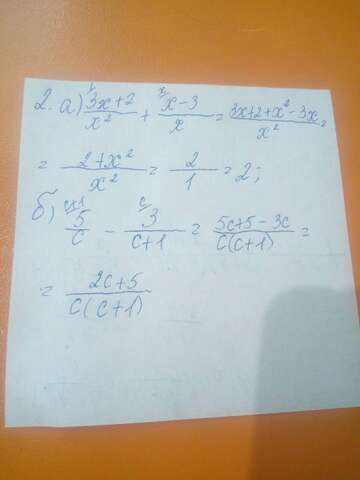 2. а) ¹⁄ (3x+2)/x² + ˣ⁄ (x-3)/x = (3x+2+x²-3x)/x² =
= (2+x²)/x² = 2/1 = 2;
б) ᶜ⁺¹⁄ 5/c - ᶜ⁄ 3/(c+1) = (5c+5-3c)/(c(c+1)) =
= (2c+5)/(c(c+1))